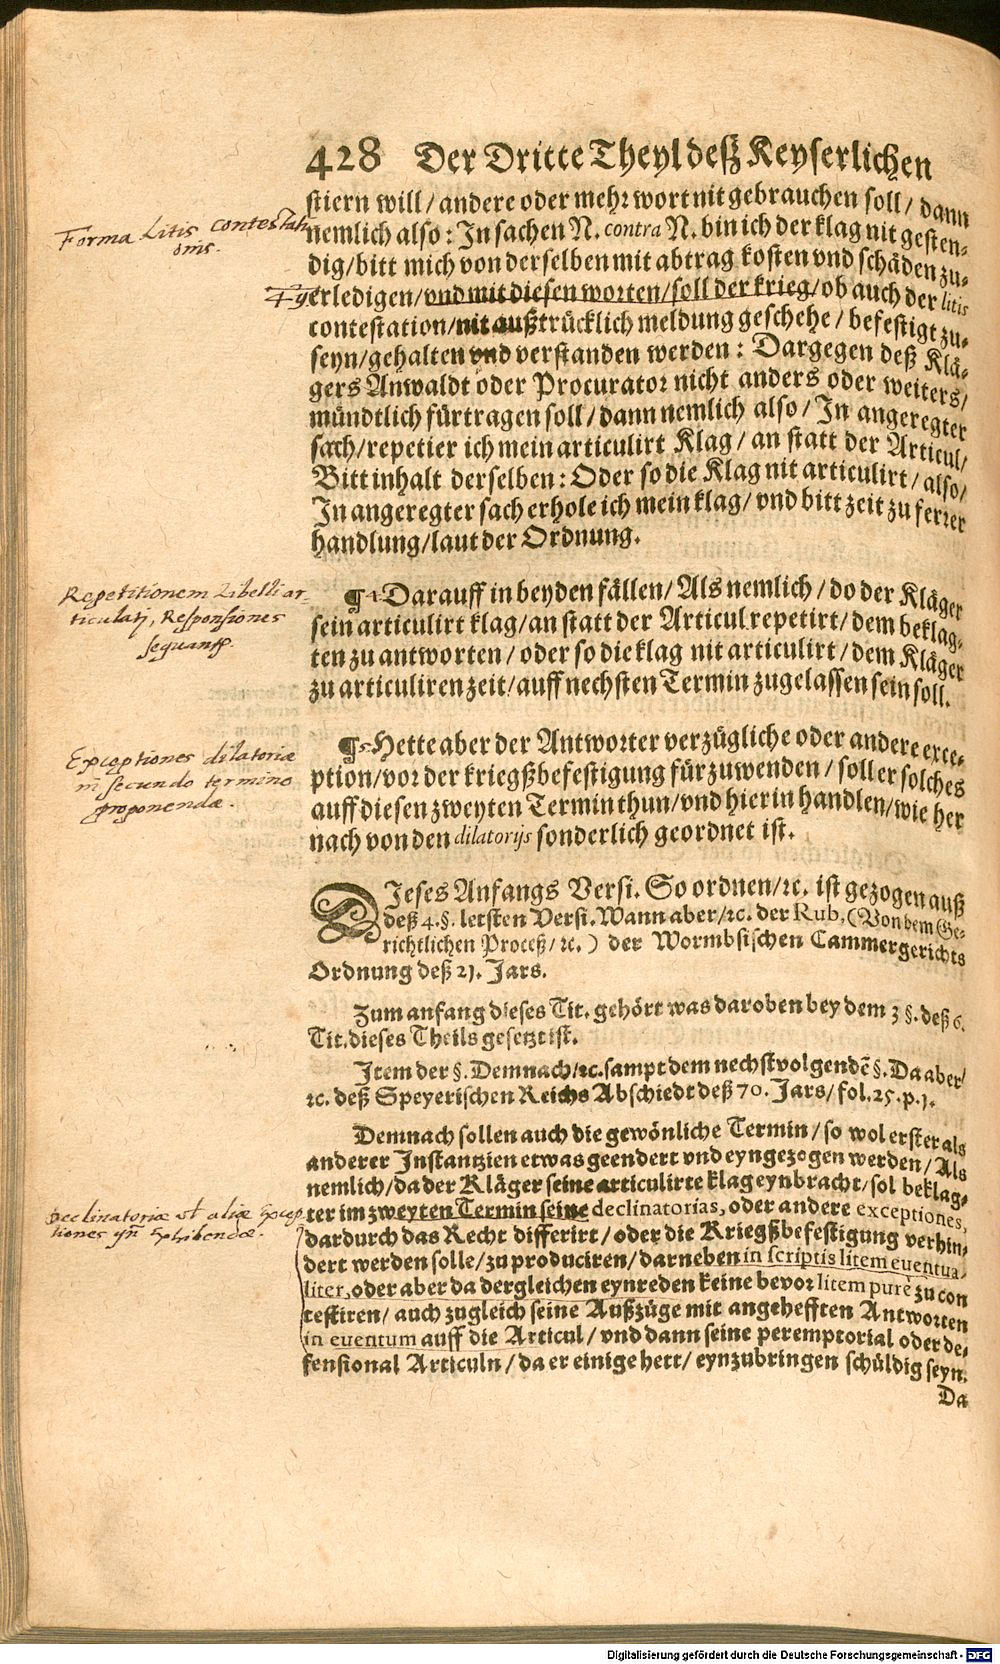 428 Der Dritte Theyl deß Keyserlichen
stiern will / andere oder mehr wort nit gebrauchen soll / dann
nemlich also: In sachen N. contra N. bin ich der klag nit gesten-
dig / bitt mich von derselben mit abtrag kosten vnd schäden zu-
erledigen / vnd mit diesen worten / soll der krieg / ob auch der litis
contestation / nit außtrücklich meldung geschehe / befestigt zu-
seyn / gehalten vnd verstanden werden: Dargegen deß Klä-
gers Anwaldt oder Procurator nicht anders oder weiters /
mündtlich fürtragen soll / dann nemlich also / In angeregter
sach / repetier ich mein articulirt Klag / an statt der Articul /
Bitt inhalt derselben: Oder so die Klag nit articulirt / also /
In angeregter sach erhole ich mein klag / vnd bitt zeit zu ferrer
handlung / laut der Ordnung.
Forma Litis contestati
onis.
¶ 4 Darauff in beyden fällen / Als nemlich / do der Kläger
sein articulirt klag / an statt der Articul repetirt / dem beklag-
ten zu antworten / oder so die klag nit articulirt / dem Kläger
zu articuliren zeit / auff nechsten Termin zugelassen sein soll.
Repetitionem Libelli ar-
ticulatj, Responsiones
¶ 5 Hette aber der Antworter verzügliche oder andere exce-
ption / vor der kriegßbefestigung fürzuwenden / soll er solches
auff diesen zweyten Termin thun / vnd hierin handlen / wie her
nach von den dilatorijs sonderlich geordnet ist.
Exceptiones dilatoriæ
in secundo termino
proponendæ.
DIeses Anfangs Versi. So ordnen / ꝛc. ist gezogen auß
deß 4. §. letsten Versi. Wann aber / ꝛc. der Rub. (Von dem Ge-
richtlichen Proceß / ꝛc.) der Wormbsischen Cammergerichts
Ordnung deß 21. Jars.
Zum anfang dieses Tit. gehört was daroben bey dem 3 §. deß 6.
Tit. dieses Theils gesetzt ist.
Item der §. Demnach / ꝛc. sampt dem nechstvolgendẽ §. Da aber /
ꝛc. deß Speyerischen Reichs Abschiedt deß 70. Jars / fol. 25. p. 1.
Demnach sollen auch die gewönliche Termin / so wol erster als
anderer Instantzien etwas geendert vnd eyngezogen werden / Als
nemlich / da der Kläger seine articulirte klag eynbracht / sol beklag-
ter im zweyten Termin seine declinatorias, oder andere exceptiones,
dardurch das Recht differirt / oder die Kriegßbefestigung verhin-
dert werden solle / zu produciren / darneben in scriptis litem euentua-
liter, oder aber da dergleichen eynreden keine bevor litem purè zu con
testiren / auch zugleich seine Außzüge mit angehefften Antworten
in euentum auff die Articul / vnd dann seine peremptorial oder de-
fensional Articuln / da er einige hett / eynzubringen schüldig seyn.
Declinatoriæ et aliæ Excep
tiones
Da
Digitalisierung gefördert durch die Deutsche Forschungsgemeinschaft - DFG